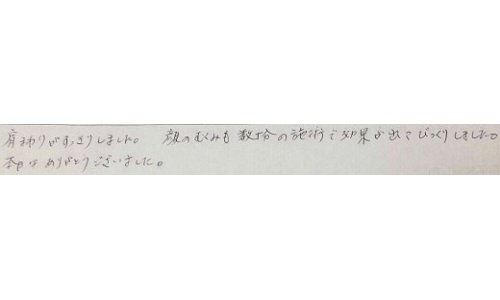 肩周りがすっきりしました。 顔のむくみも数分の施術で効果が出てびっくりしました。
本日はありがとうございました。